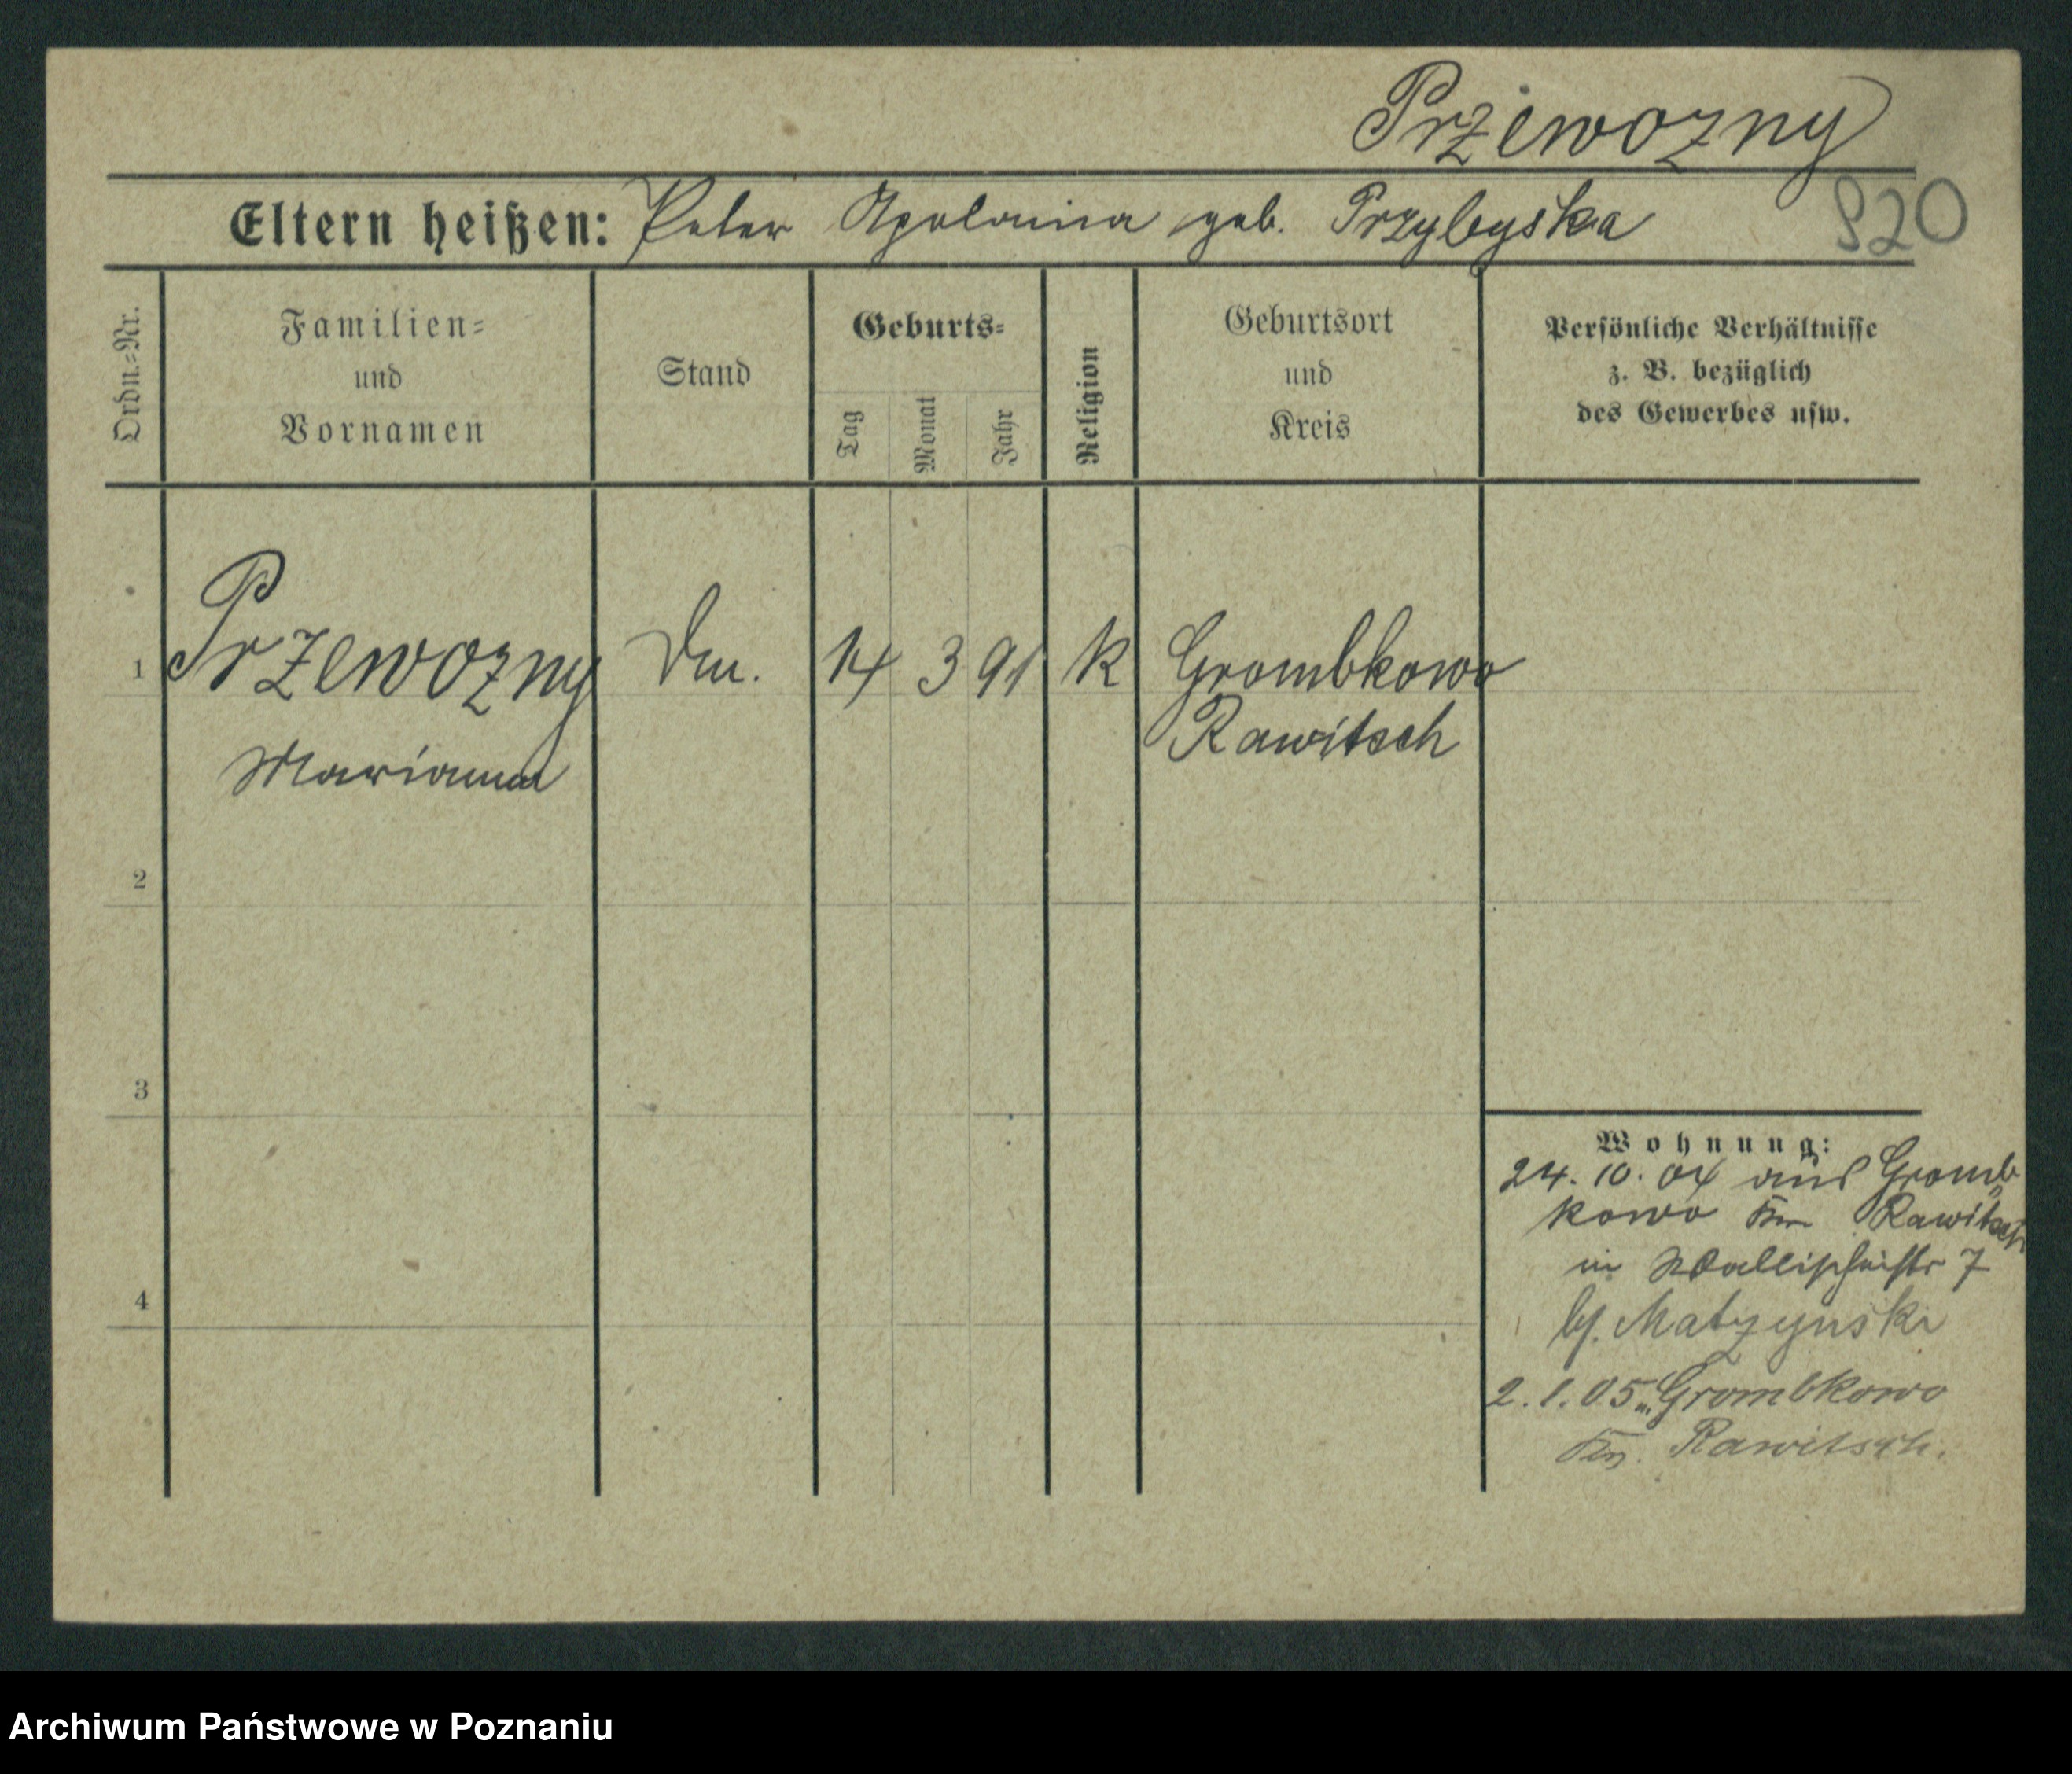 Przewozny
Eltern heißen: Peter Apolonia geb. Przybyska
920
Ordn.=Nr.
Familien=
und
Vornamen
Stand
Geburts=
Tag
Monat
Jahr
Religion
Geburtsort
und
Kreis
Persönliche Verhältnisse
z. B. bezüglich
des Gewerbes usw.
1 Przewozny 14 3 91 k Grombkowo
Rawitsch
Marianna
2
3
4
Wohnung:
24. 10. 04 aus Gromb
kowo Krs Rawitsch
in Wallischeistr 7
bj. Matzynski
2.1.05 n. Grombkowo
Krs. Rawitsch.
Archiwum Państwowe w Poznaniu